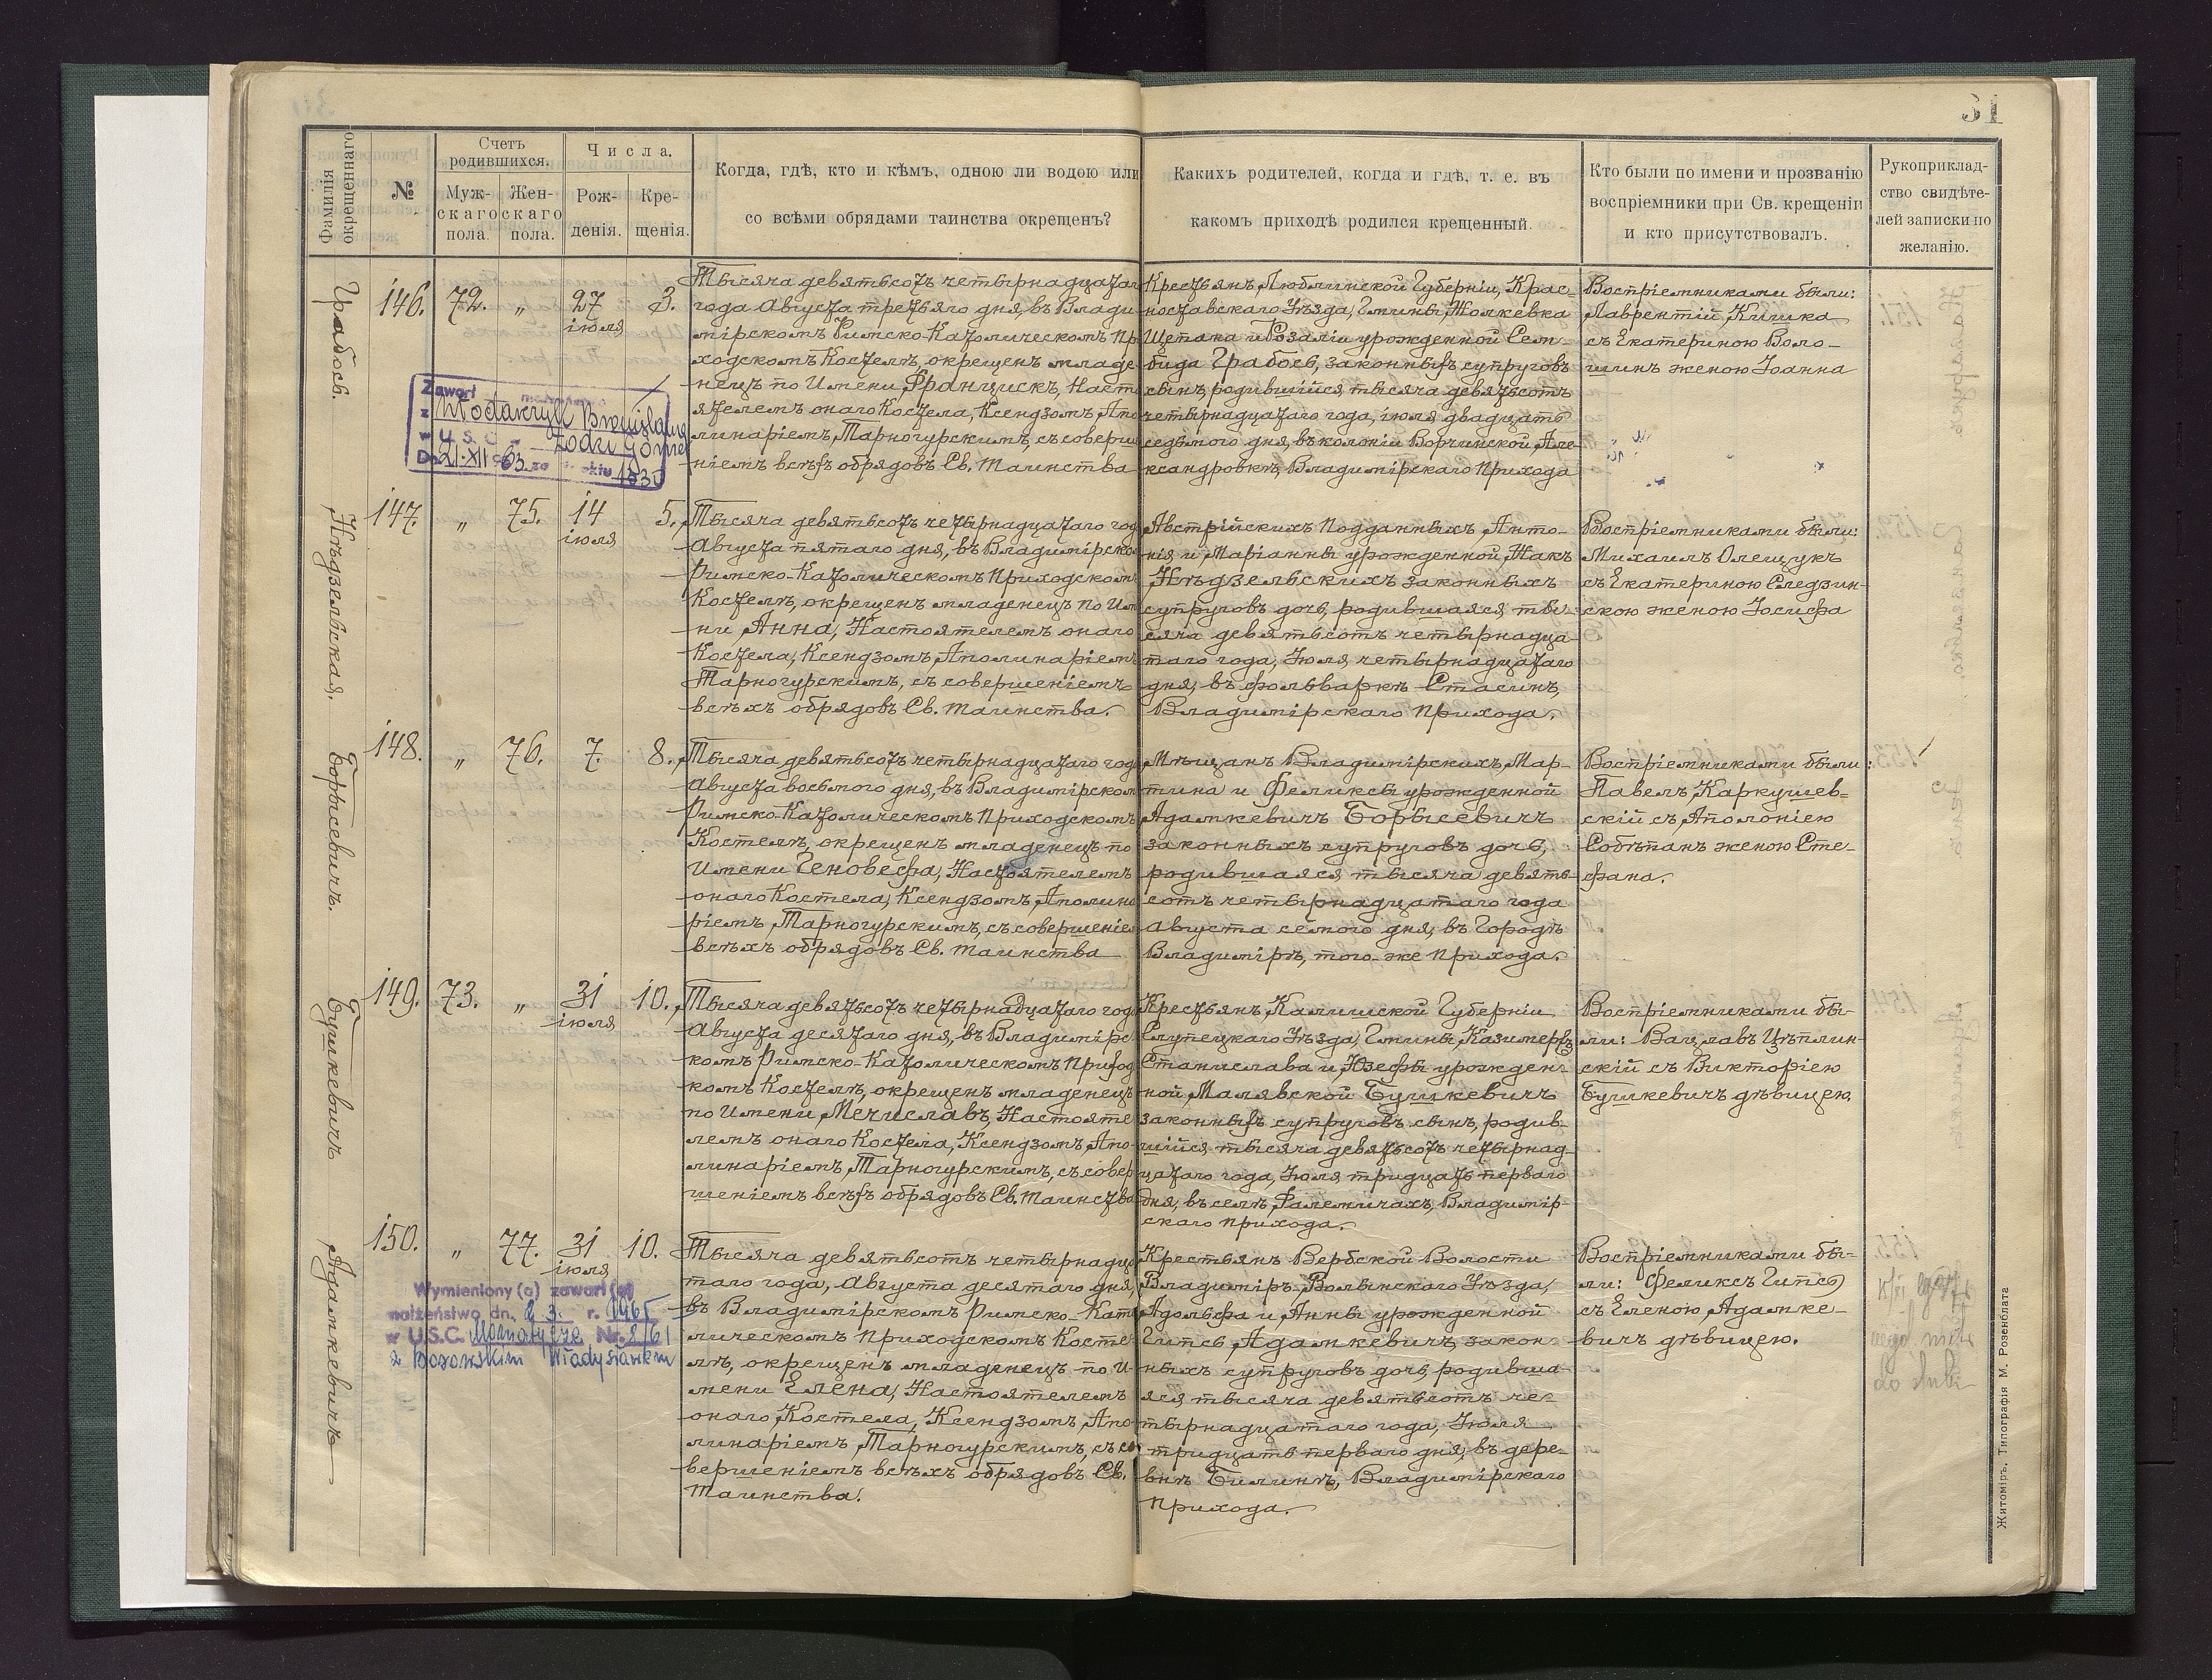 31
Фамилія окрещеннаго
№
Счетъ родившихся.
Муж-
скаго
пола.
Жен-
скаго
пола.
Числа.
Рож-
денія.
Кре-
щенія.
Когда, гдѣ, кто и кѣмъ, одною ли водою или
со всѣми обрядами таинства окрещенъ?
Какихъ родителей, когда и гдѣ, т. е. въ
какомъ приходѣ родился крещенный.
Кто были по имени и прозванію
воспріемники при Св. крещеніи
и кто присутствовалъ.
Рукоприклад-
ство свидѣте-
лей записки по
желанію.
Грабось.
146. 72. „ 27 іюля 3.
Тысяча девятьсотъ четырнадцатаго
года Августа третьяго дня, въ Влади
мірскомъ Римско-Католическомъ При
ходскомъ Костелѣ, окрещенъ младе
нецъ по Имени Францискъ, Насто
ятелемъ онаго Костела, Ксендзомъ Апо
линаріемъ Тарногурскимъ, съ соверше
ніемъ всѣхъ обрядовъ Св. Таинства
Крестьянъ Люблинской Губерніи, Крас-
ноставскаго Уѣзда, Гмины Жолкевка
Щепана и Розаліи урожденной Сем-
бида Грабось, законныхъ супруговъ
сынъ, родившійся тысяча девятьсотъ
четырнадцатаго года, іюля двадцать
седьмого дня, въ колоніи Ворчинской Але-
ксандровкѣ, Владимірскаго Прихода
Воспріемниками были:
Лаврентій Кишка
съ Екатериною Воло-
шинъ женою Іоанна
Zawarł
z Włodarczyk Bronisława
w U.S.C.
21.XII 63
Нѣдзельская.
147. „ 75. 14 іюля 5.
Тысяча девятьсотъ четырнадцатаго года
Августа пятаго дня, въ Владимірскомъ
Римско-Католическомъ Приходскомъ
Костелѣ, окрещенъ младенецъ по Име
ни Анна, Настоятелемъ онаго
Костела, Ксендзомъ Аполинаріемъ
Тарногурскимъ, съ совершеніемъ
всѣхъ обрядовъ Св. таинства.
Австрійскихъ подданныхъ Анто-
нія и Маріанны урожденной Жакъ
Нѣдзельскихъ законныхъ
супруговъ дочь, родившаяся ты-
сяча девятьсотъ четырнадца
таго года, Іюля четырнадцатаго
дня, въ фольваркѣ Стасинъ,
Владимірскаго прихода.
Воспріемниками были:
Михаилъ Олещукъ
съ Екатериною Следзин-
скою женою Іосифа
Борысевичъ.
148. „ 76. 7. 8.
Тысяча девятьсотъ четырнадцатаго года
Августа восьмого дня, въ Владимірском
Римско-Католическомъ Приходскомъ
Костелѣ, окрещенъ младенецъ по
Имени Геновефа, Настоятелемъ
онаго Костела, Ксендзомъ Аполина
ріемъ Тарногурскимъ, съ совершеніем
всѣхъ обрядовъ Св. таинства
Мѣщанъ Владимірскихъ Мар-
тина и Феликсы урожденной
Адамкевичъ Борысевичъ
законныхъ супруговъ дочь,
родившаяся тысяча девять-
сотъ четырнадцатаго года
Августа семого дня, въ Городѣ
Владимірѣ, того-же прихода.
Воспріемниками были:
Павелъ Каркушев-
скій съ Аполоніею
Собѣпанъ женою Сте-
фана.
Бушкевичъ
149. 73. „ 31 іюля 10.
Тысяча девятьсотъ четырнадцатаго года
Августа десятаго дня, въ Владимірс
комъ Римско-Католическомъ Приход
комъ Костелѣ, окрещенъ младенецъ
по Имени Мечиславъ, Настояте
лемъ онаго Костела, Ксендзомъ Апо-
линаріемъ Тарногурскимъ, съ совер
шеніемъ всѣхъ обрядовъ Св. таинства
Крестьянъ Калишской Губерніи
Слупецкаго Уѣзда, Гмины Казимержъ
Станислава и Юзефы урожден-
ной Малявской Бушкевичъ
законныхъ супруговъ сынъ, родив-
шійся тысяча девятьсотъ четырнад-
цатаго года, Іюля тридцать перваго
дня, въ селѣ Фалемичахъ, Владимір-
скаго прихода.
Воспріемниками бы-
ли: Вацлавъ Цѣплин-
скій съ Викторіею
Бушкевичъ дѣвицею.
Адамкевичъ
150. „ 77. 31 іюля 10.
Тысяча девятьсотъ четырнадца
таго года, Августа десятаго дня,
въ Владимірскомъ Римско-Като
лическомъ Приходскомъ Косте
лѣ, окрещенъ младенецъ по И-
мени Елена, Настоятелемъ
онаго Костела, Ксендзомъ Апо
линаріемъ Тарногурскимъ, съ со
вершеніемъ всѣхъ обрядовъ Св.
Таинства.
Крестьянъ Вербской Волости
Владиміръ-Волынскаго Уѣзда,
Адольфа и Анны урожденной
Гипсь Адамкевичъ, закон-
ныхъ супруговъ дочь, родивша
яся тысяча девятьсотъ че-
тырнадцатаго года, Іюля
тридцать перваго дня, въ дере-
внѣ Билинѣ, Владимірскаго
прихода.
Воспріемниками бы-
ли: Феликсъ Гипсь
съ Еленою Адамке-
вичъ дѣвицею.
Wymieniony (a) zawarł (a)
małżeństwo dn. 2 3. r. 1965
w U.S.C. Nr.
z Borowskim Władysławem
Житоміръ. Типографія М. Розенблата